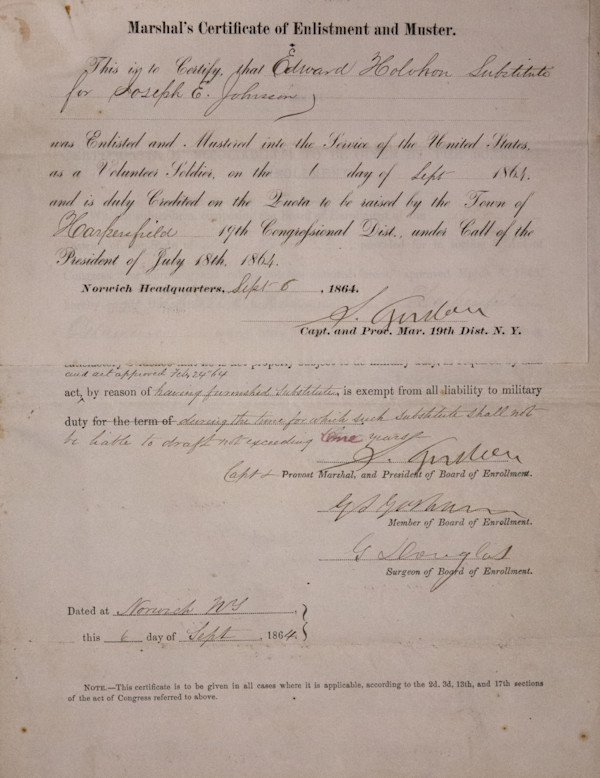 Marshal's Certificate of Enlistment and Muster.
This is to Certify, that Edward Substitute
for Joseph E. Johnson
was Enlisted and Mustered into the Service of the United States,
as a Volunteer Soldier, on the 1 day of Sept 1864,
and is duly Credited on the Quota to be raised by the Town of
Harpersfield 19th Congressional Dist., under Call of the
President of July 18th, 1864.
Norwich Headquarters, Sept 6, 1864.
Capt. and Prov. Mar. 19th Dist. N. Y.
and act approved Feb. 24 64
act, by reason of having furnished Substitute, is exempt from all liability to military
duty for the term of during the time for which such Substitute shall not
be liable to draft not exceeding One years
Capt & Provost Marshal, and President of Board of Enrollment.
Member of Board of Enrollment.
G Douglas
Surgeon of Board of Enrollment.
Dated at Norwich NY,
this 6 day of Sept, 1864.
NOTE.—This certificate is to be given in all cases where it is applicable, according to the 2d, 3d, 13th, and 17th sections
of the act of Congress referred to above.